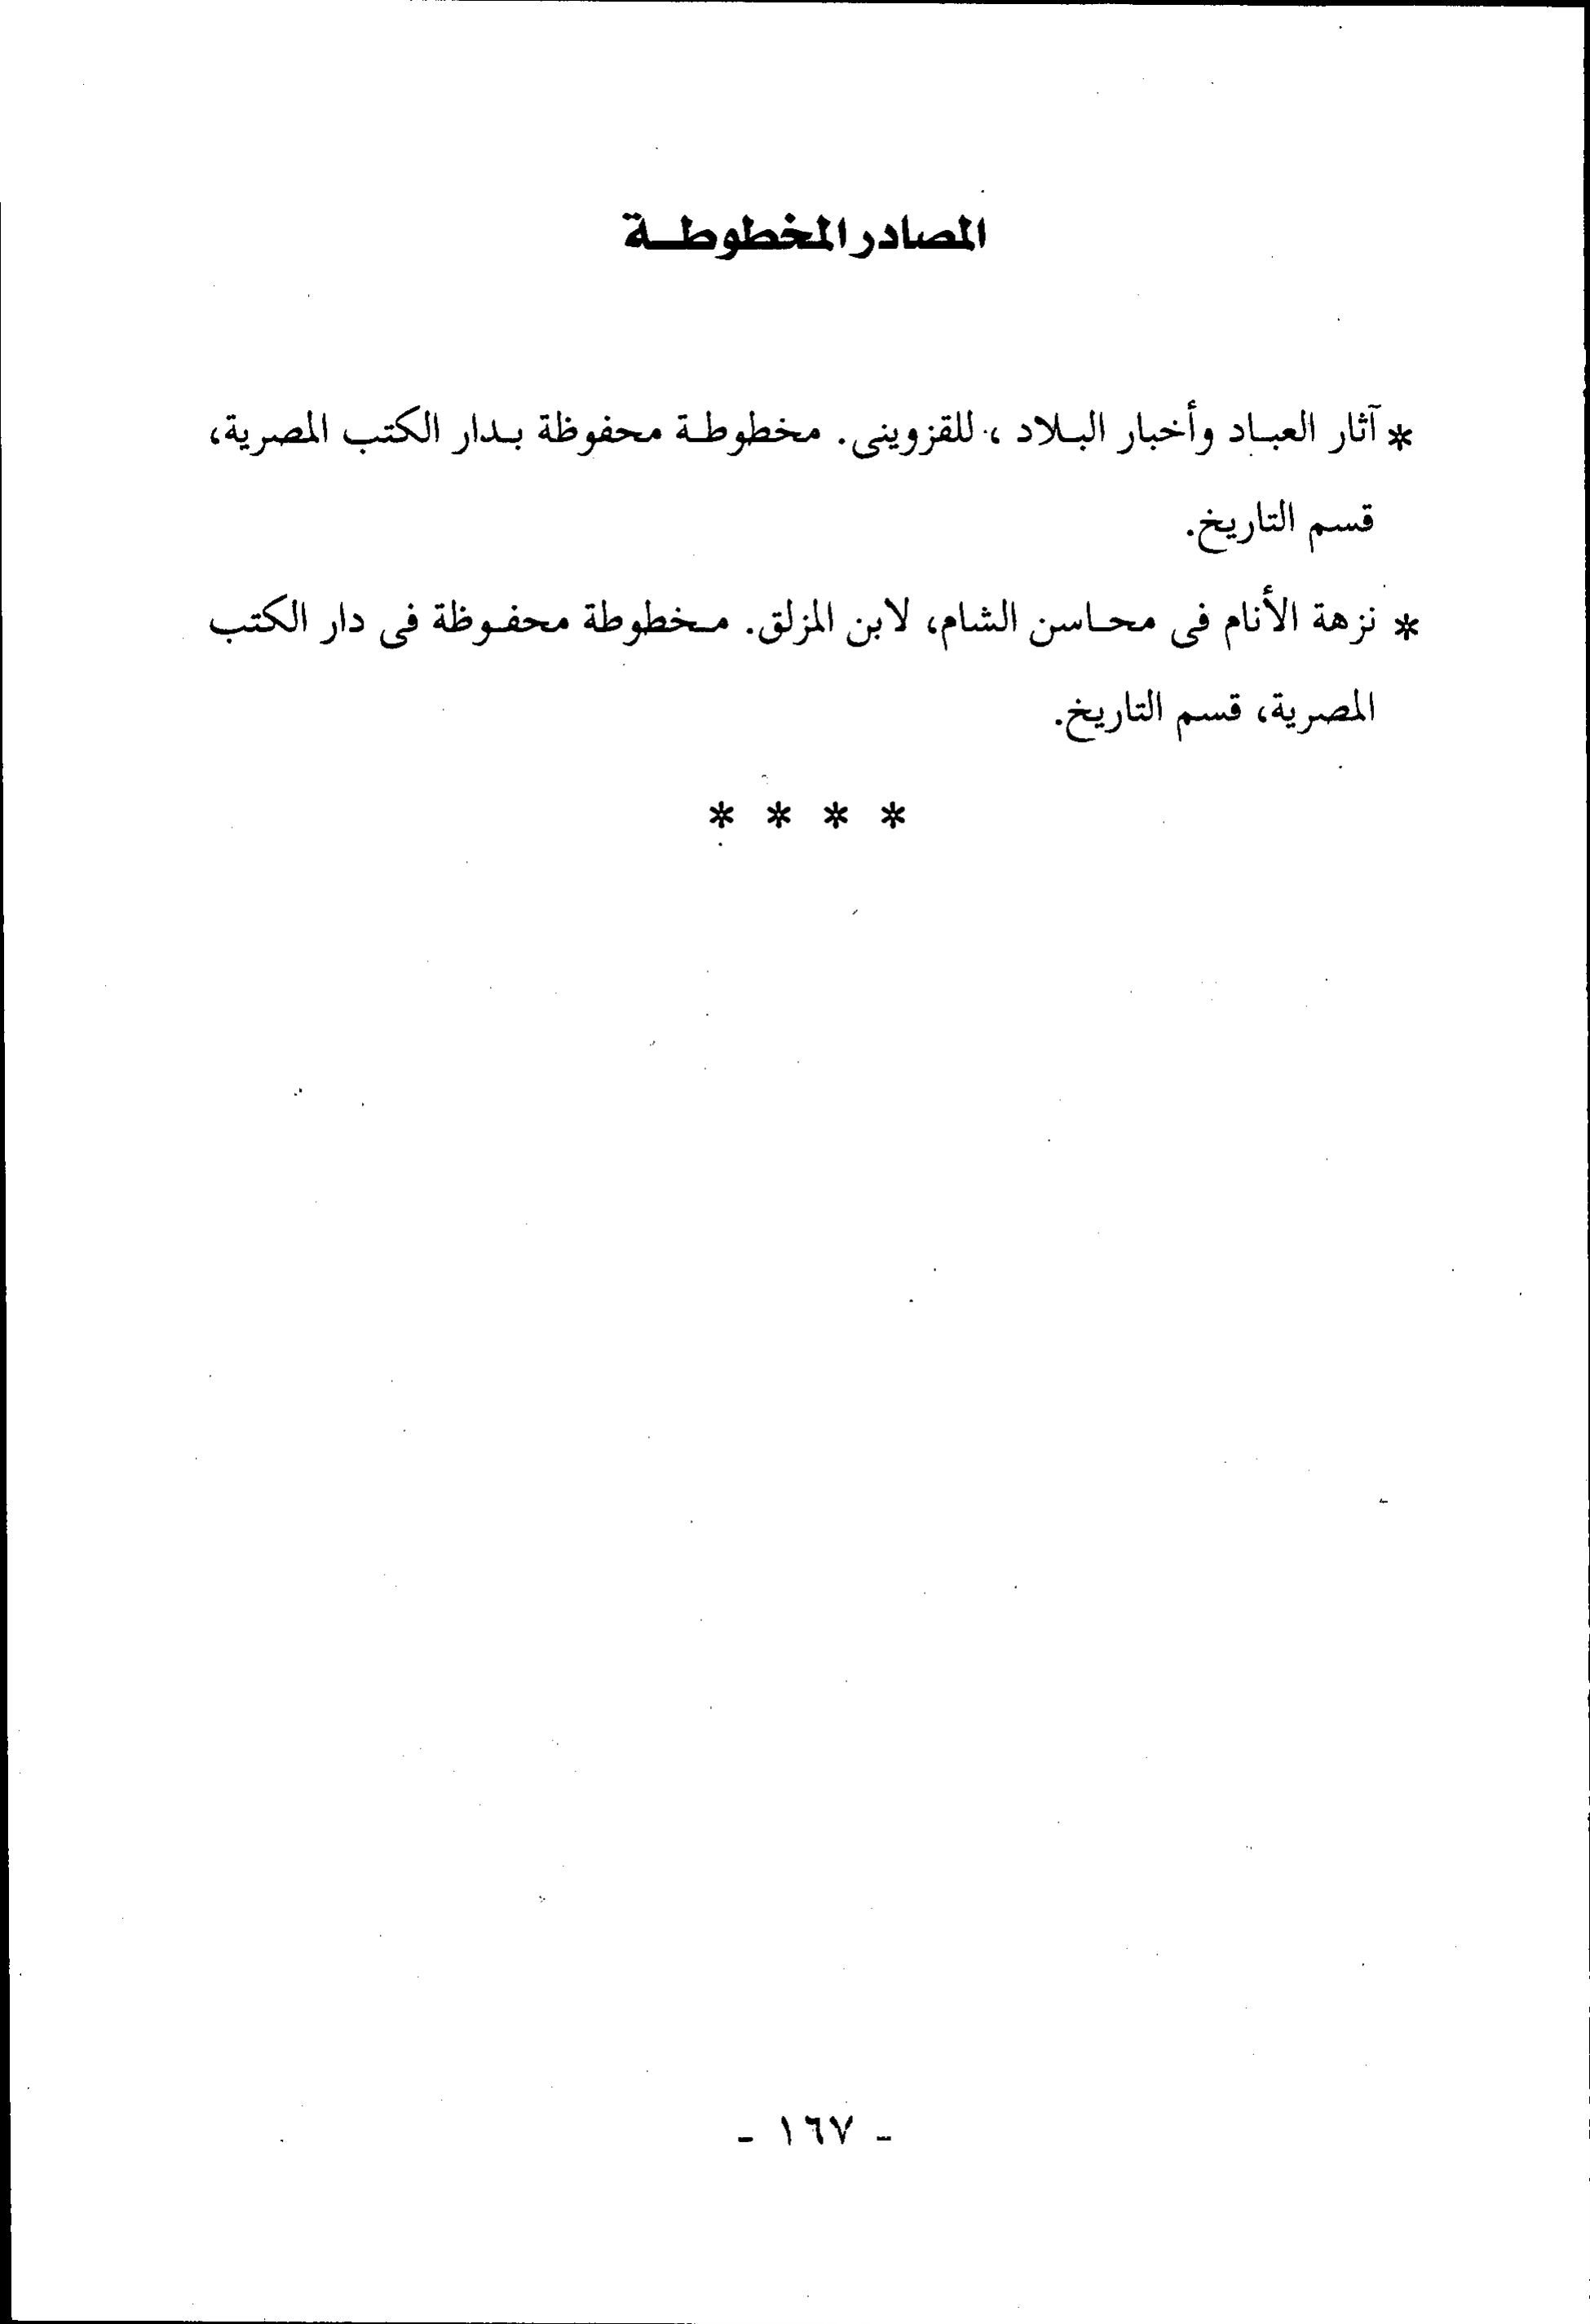 المصادر المخطوطة
* آثار العباد وأخبار البلاد ، للقزوينى. مخطوطة محفوظة بدار الكتب المصرية،
قسم التاريخ.
* نزهة الأنام فى محاسن الشام، لابن المزلق. مخطوطة محفوظة فى دار الكتب
المصرية، قسم التاريخ.
* * * *
- ١٦٧ -